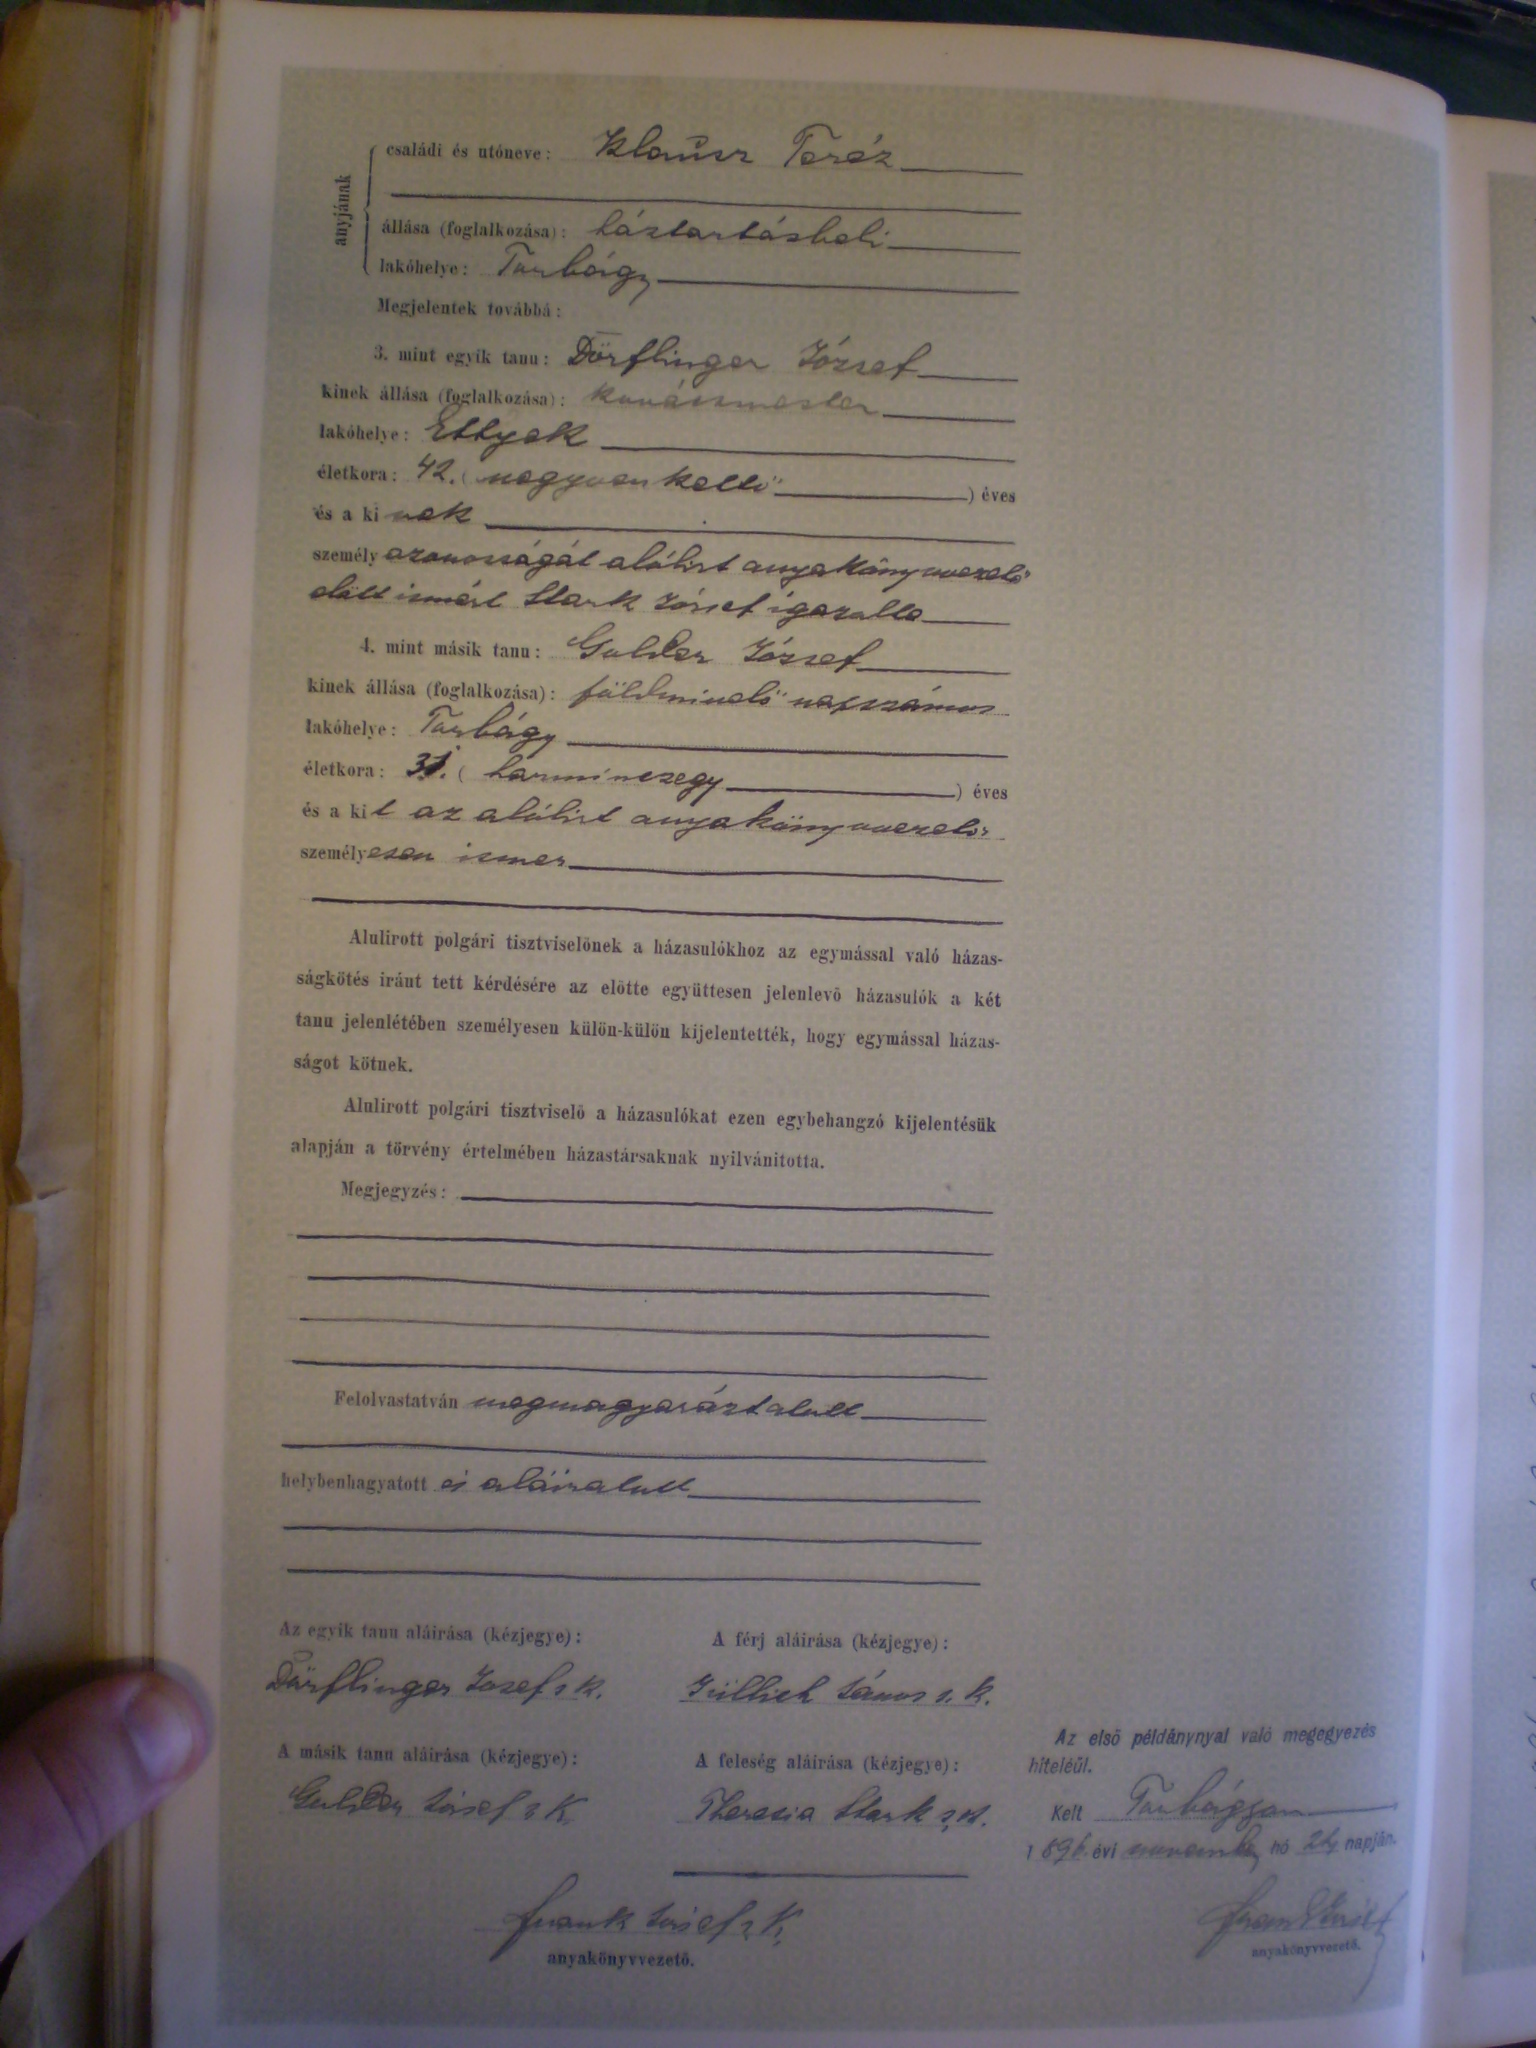 anyjának
családi és utóneve: Klausz Teréz
állása (foglalkozása): háztartásbeli
lakóhelye: Torbágy
Megjelentek továbbá:
3. mint egyik tanu: Dörflinger József
kinek állása (foglalkozása): kovácsmester
lakóhelye: Ettyek
életkora: 42. (negyvenkettő) éves
és a kinek
személyazonosságát alólirt anyakönyvvezető
előtt ismért Stark József igazolta
4. mint másik tanu: Gulder József
kinek állása (foglalkozása): földmivelő napszámos
lakóhelye: Torbágy
életkora: 31. (harminczegy) éves
és a kit az alólirt anyakönyvvezető
személyesen ismer
Alulirott polgári tisztviselőnek a házasulókhoz az egymással való házas-
ságkötés iránt tett kérdésére az előtte együttesen jelenlevő házasulók a két
tanu jelenlétében személyesen külön-külön kijelentették, hogy egymással házas-
ságot kötnek.
Alulirott polgári tisztviselő a házasulókat ezen egybehangzó kijelentésük
alapján a törvény értelmében házastársaknak nyilvánitotta.
Megjegyzés:
Felolvastatván megmagyaráztatott
helybenhagyatott és aláiratott
Az egyik tanu aláirása (kézjegye): A férj aláirása (kézjegye):
Dörflinger Josef s. k. Güllich János s. k.
A másik tanu aláirása (kézjegye): A feleség aláirása (kézjegye):
Gulder József s. k. Theresia Stark s. k.
Frank József s. k.
anyakönyvvezető.
Az első példánynyal való megegyezés
hiteléül.
Kelt Torbágyon
1896. évi november hó 24 napján.
Frank József
anyakönyvvezető.